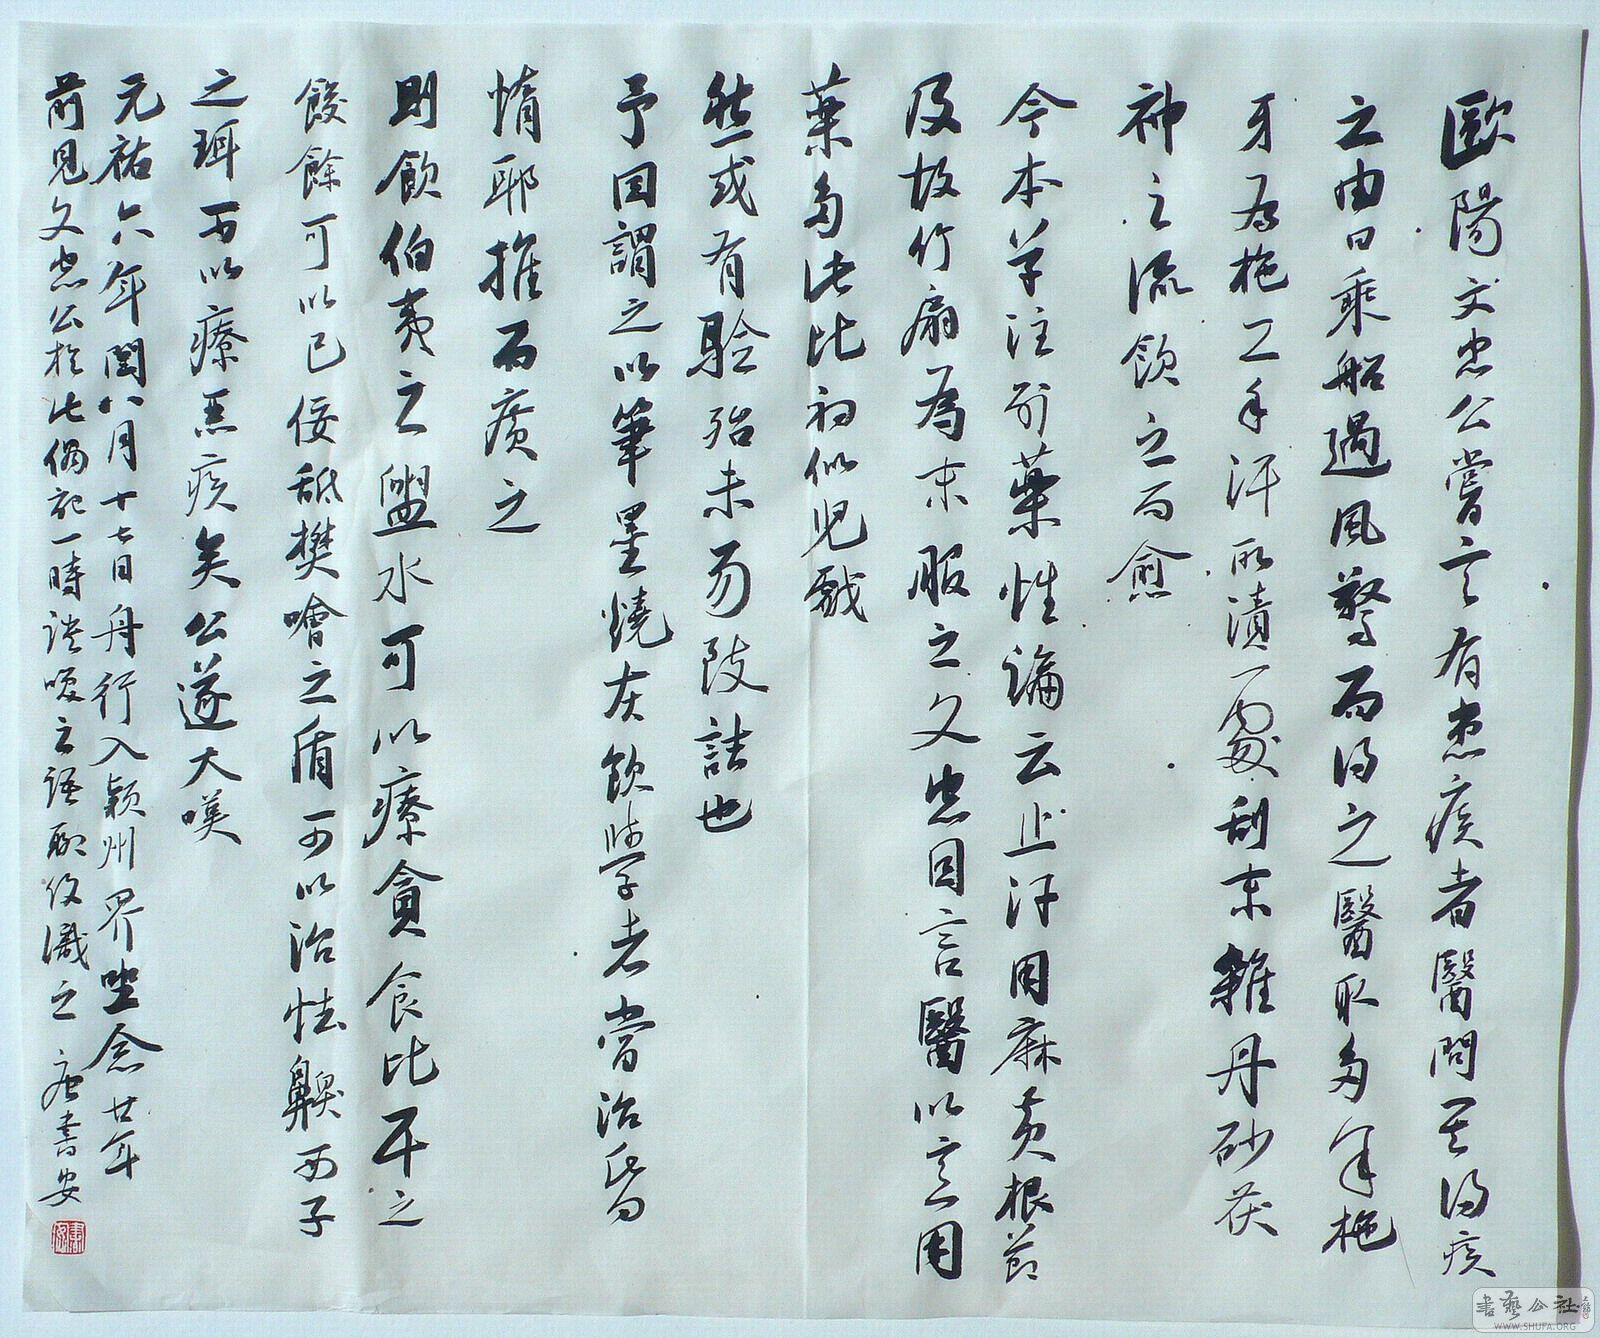 歐陽文忠公嘗言有患疾者醫問其得疾
之由曰乘船遇風驚而得之醫取多年柂
牙為柂工手汗所漬處刮末雜丹砂茯
神之流飲之而愈
今本草注別藥性論云止汗用麻黃根節
及故竹扇為末服之文忠因言醫以意用
藥多此比初似兒戲
然或有驗殆未易致詰也
予因謂之以筆墨燒灰飲學者當治昏
惰耶推而廣之
則飲伯夷之盥水可以療貪食比干之
餕餘可以已佞舐樊噲之盾可以治怯齅西子
之珥可以療惡疾矣公遂大嘆
元祐六年閏八月十七日舟行入潁州界坐念廿年
前見文忠公於此偶記一時談笑之語聊復識之 書安
書藝公社
WWW.SHUFA.ORG